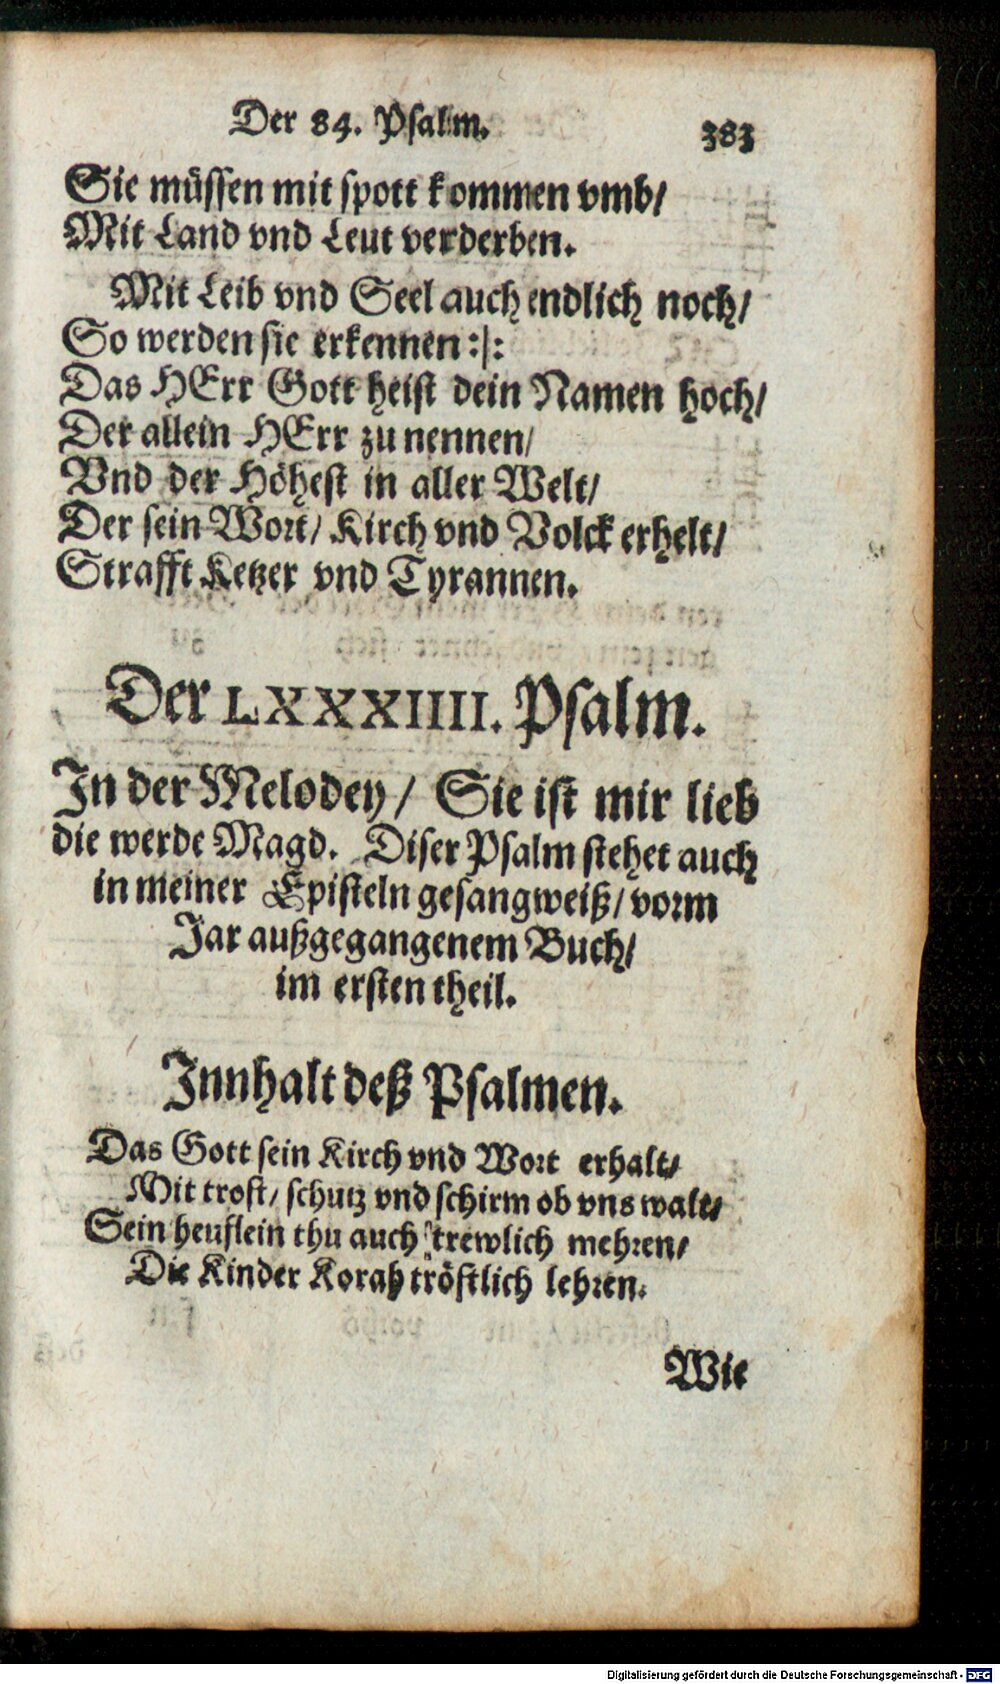 Der 84. Psalm. 383
Sie müssen mit spott kommen vmb/
Mit Land vnd Leut verderben.
Mit Leib vnd Seel auch endlich noch/
So werden sie erkennen :|:
Das HErr Gott heist dein Namen hoch/
Der allein HErr zu nennen/
Vnd der Höhest in aller Welt/
Der sein Wort/ Kirch vnd Volck erhelt/
Strafft Ketzer vnd Tyrannen.
Der LXXXIIII. Psalm.
In der Melodey/ Sie ist mir lieb
die werde Magd. Diser Psalm stehet auch
in meiner Episteln gesangweiß/ vorm
Jar außgegangenem Buch/
im ersten theil.
Innhalt deß Psalmen.
Das Gott sein Kirch vnd Wort erhalt/
Mit trost/ schutz vnd schirm ob vns walt/
Sein heuflein thu auch trewlich mehren/
Die Kinder Korah tröstlich lehren.
Wie
Digitalisierung gefördert durch die Deutsche Forschungsgemeinschaft - DFG